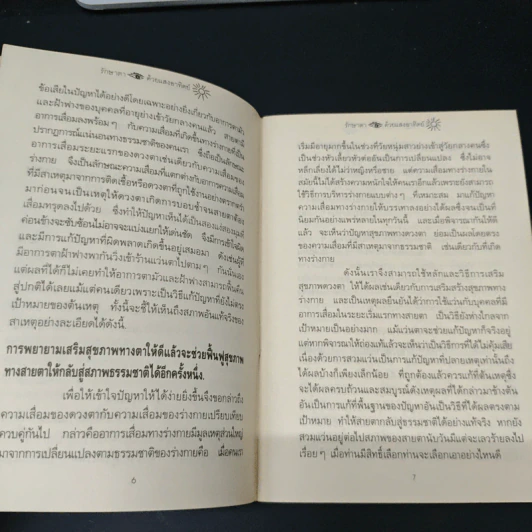 รักษาตา ด้วยแสงอาทิตย์
ข้อเสียในปัญหาได้อย่างดีโดยเฉพาะอย่างยิ่งเกี่ยวกับอาการตามัว
และฝ้าฟางของบุคคลที่อายุย่างเข้าวัยกลางคนแล้ว สายตามี
อาการเสื่อมลงพร้อมๆ กับความเสื่อมที่เกิดขึ้นทางร่างกายที่เป็น
ปรากฏการณ์แน่นอนทางธรรมชาติของคนเรา ซึ่งถือเป็นลักษณะ
อาการเสื่อมระยะแรกของดวงตาเช่นเดียวกับความเสื่อมของ
ร่างกาย ซึ่งเป็นลักษณะความเสื่อมที่แตกต่างกับอาการความเสื่อม
ที่มีสาเหตุมาจากการติดเชื้อหรือดวงตาที่ถูกใช้งานอย่างตรากตรำ
มาก่อนจนเป็นเหตุให้ดวงตาเกิดการบอบช้ำจนสายตาต้อง
เสื่อมทรุดลงไปด้วย ซึ่งทำให้ปัญหาเห็นได้เป็นสองแง่สองมุมที่
ค่อนข้างจะซับซ้อนไม่อาจจะแบ่งแยกให้เด่นชัด จึงมีการเข้าใจผิด
และมีการแก้ปัญหาที่ผิดพลาดเกิดขึ้นอยู่เสมอมา ดังเช่นผู้ที่
มีอาการตาฝ้าฟางพากันวิ่งเข้าร้านแว่นตาไปตามๆ กันนั่นเอง
แต่ผลที่ได้ก็ไม่เคยทำให้อาการตามัวและฝ้าฟางสามารถฟื้นคืน
สู่ปกติได้เลยแม้แต่คนเดียวเพราะเป็นวิธีแก้ปัญหาที่ยังไม่ตรง
เป้าหมายของต้นเหตุ ทั้งนี้จะชี้ให้เห็นถึงสภาพอันแท้จริงของ
สาเหตุอย่างละเอียดได้ดังนี้.
การพยายามเสริมสุขภาพทางตาให้ดีแล้วจะช่วยฟื้นฟูสุขภาพ
ทางสายตาให้กลับสู่สภาพธรรมชาติได้อีกครั้งหนึ่ง.
เพื่อให้เข้าใจปัญหาให้ได้ง่ายยิ่งขึ้นจึงขอกล่าวถึง
ความเสื่อมของดวงตากับความเสื่อมของร่างกายเปรียบเทียบ
ควบคู่กันไป กล่าวคืออาการเสื่อมทางร่างกายมีมูลเหตุส่วนใหญ่
มาจากการเปลี่ยนแปลงตามธรรมชาติของร่างกายคือ เมื่อคนเรา
6
รักษาตา ด้วยแสงอาทิตย์
เริ่มมีอายุมากขึ้นในช่วงที่วัยหนุ่มสาวย่างเข้าสู่วัยกลางคนซึ่ง
เป็นช่วงหัวเลี้ยวหัวต่ออันเป็นการเปลี่ยนแปลง ซึ่งไม่อาจ
หลีกเลี่ยงได้ไม่ว่าหญิงหรือชาย แต่ความเสื่อมทางร่างกายใน
สมัยนี้ไม่ได้สร้างความหนักใจให้คนเราอีกแล้วเพราะยังสามารถ
ใช้วิธีการบริหารร่างกายแบบต่างๆ ที่เหมาะสม มาแก้ปัญหา
ความเสื่อมทางร่างกายให้บรรเทาลงอย่างได้ผลซึ่งจนเป็นที่
นิยมกันอย่างแพร่หลายในทุกวันนี้ และเมื่อพิจารณากันให้ดี
แล้ว จะเห็นว่าปัญหาความเสื่อมของดวงตา ย่อมเป็นผลโดยตรง
ของความเสื่อมที่มีสาเหตุมาจากธรรมชาติ เช่นเดียวกับที่เกิด
ทางร่างกาย
ดังนั้นเราจึงสามารถใช้หลักและวิธีการเสริม
สุขภาพดวงตา ให้ได้ผลเช่นเดียวกับการเสริมสร้างสุขภาพทาง
ร่างกาย และเป็นเหตุผลยืนยันได้ว่าการใช้แว่นกับบุคคลที่มี
อาการเสื่อมในระยะเริ่มแรกทางสายตา เป็นวิธียังห่างไกลจาก
เป้าหมายเป็นอย่างมาก แม้แว่นตาจะช่วยแก้ปัญหาก็จริงอยู่
แต่หากพิจารณาให้ถ่องแท้แล้วจะเห็นว่าเป็นวิธีการที่ได้ไม่คุ้มเสีย
เนื่องด้วยการสวมแว่นเป็นการแก้ปัญหาที่ปลายเหตุเท่านั้นถึง
ได้ผลบ้างก็เพียงเล็กน้อย ที่ถูกต้องแล้วควรแก้ที่ต้นเหตุซึ่ง
จะได้ผลครบถ้วนและสมบูรณ์ดังเหตุผลที่ได้กล่าวมาข้างต้น
อันเป็นการแก้ที่พื้นฐานของปัญหาอันเป็นวิธีที่ได้ผลตรงตาม
เป้าหมาย ทำให้สายตากลับสู่ธรรมชาติได้อย่างแท้จริง หากยัง
สวมแว่นอยู่ต่อไปสภาพของสายตานับวันมีแต่จะเลวร้ายลงไป
เรื่อยๆ เมื่อท่านมีสิทธิ์เลือกท่านจะเลือกเอาอย่างไหนดี
7